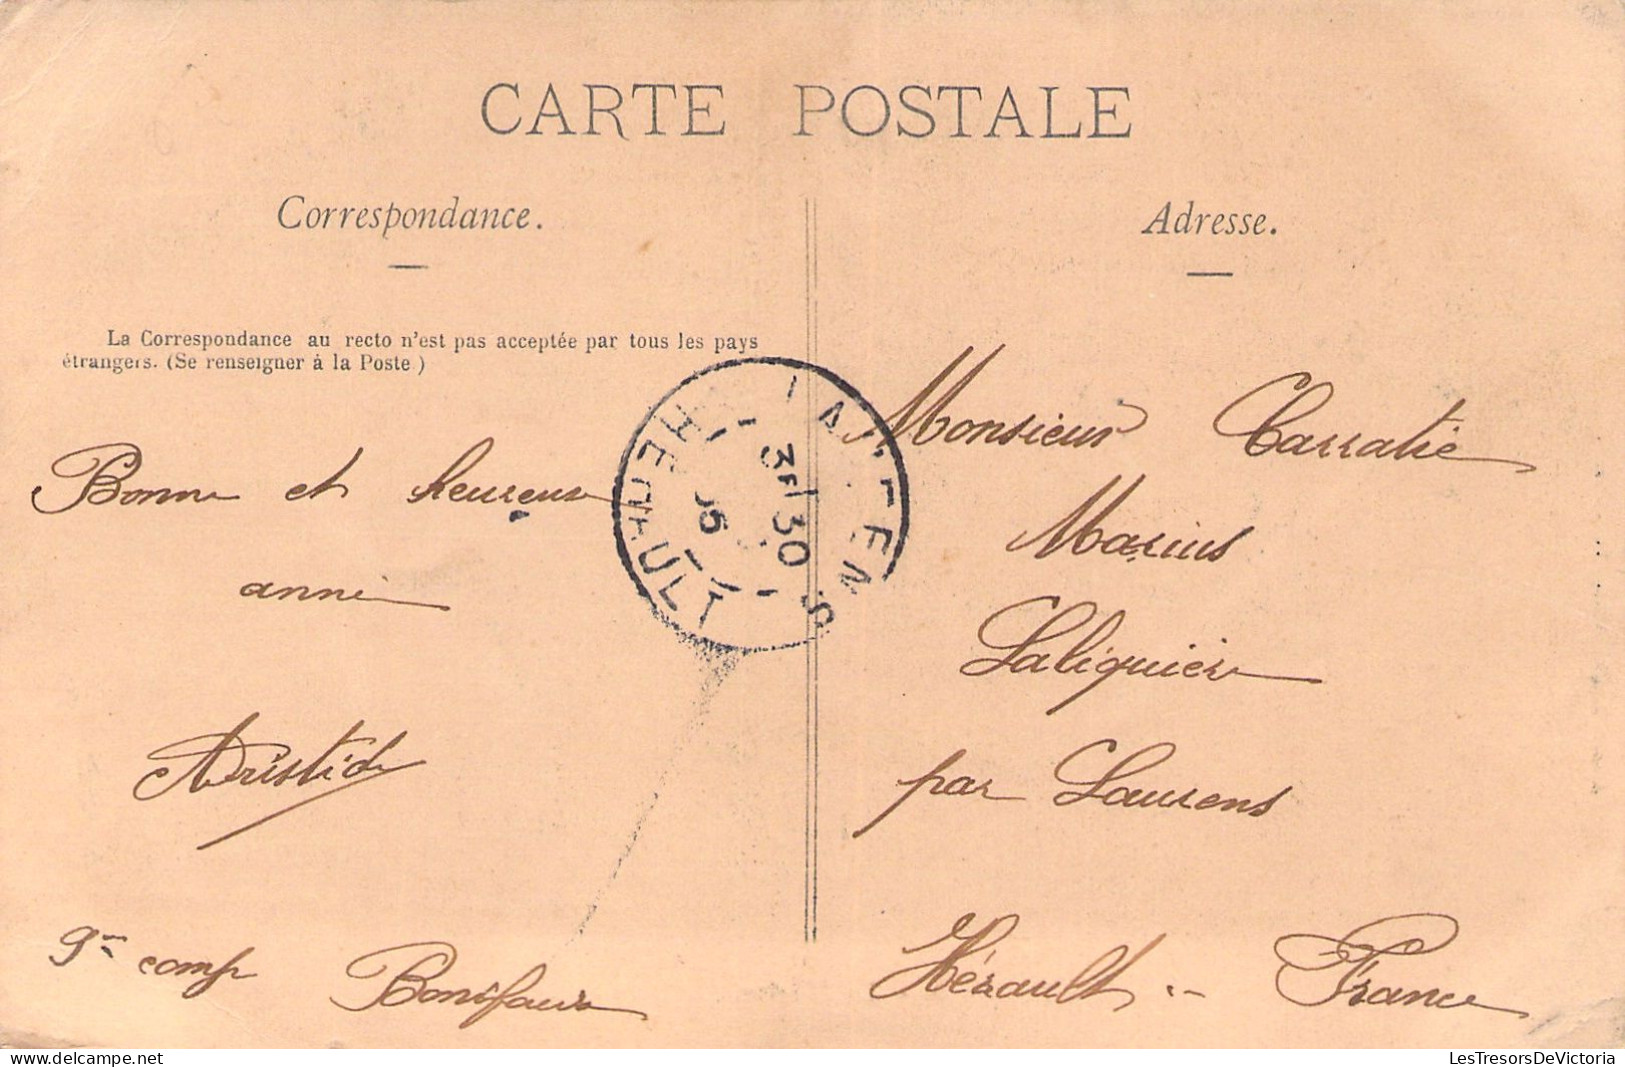 CARTE POSTALE
Correspondance.
Adresse.
La Correspondance au recto n'est pas acceptée par tous les pays
étrangers. (Se renseigner à la Poste)
Bonne et heureuse
année
Aristide
9me comp Bonifacio
Monsieur Carratié
Marius
Laliquière
par Laurens
Hérault France
LAURENS
HERAULT
30
06
LesTresorsDeVictoria